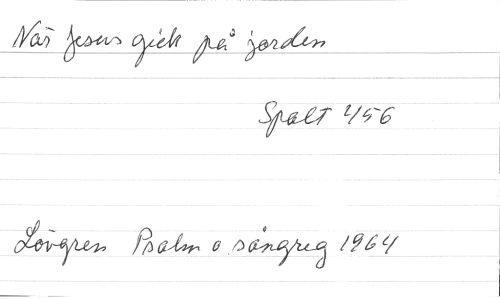 När Jesus gick på jorden
Spalt 456
Lövgren Psalm o. sångreg 1964